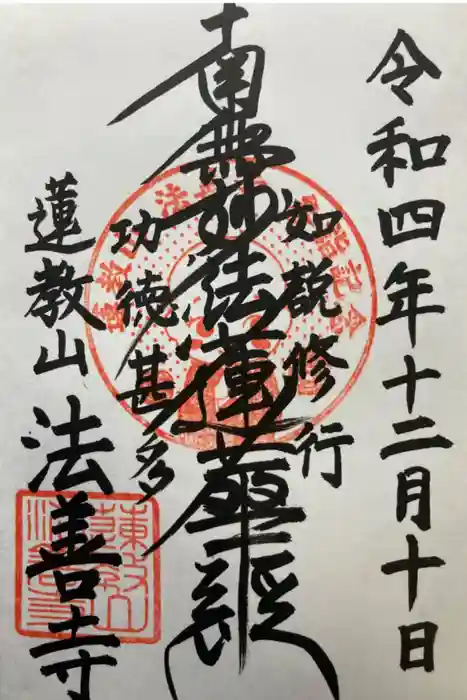 令和四年十二月十日
如説修行
南無妙法蓮華経
功徳甚多
蓮教山
法善寺